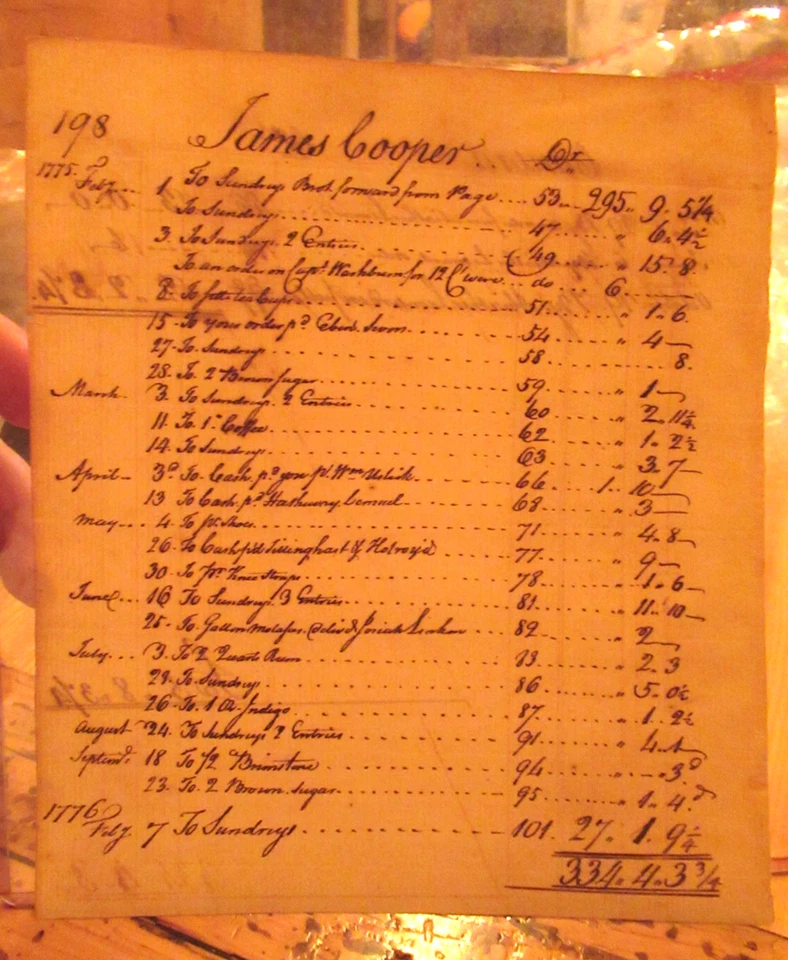 198 James Cooper Dr.
1775 Feby 1 To Sundrys Brot forward from Page 53 295 9 5¼
To Sundrys 47 " 6 4½
3 To Sundrys 2 Entries 49 " 15 8
To an order on Capt Washburn for 12 do 6
8 To Cups 51 " 1 6
15 To your order pd Eben 54 " 4
27 To Sundrys 58 8
28 To 2 Brown Sugar 59 " 1
March 3 To Sundrys 2 Entries 60 " 2 11¼
11 To 1 Coffee 62 " 1 2½
14 To Sundrys 63 " 3 7
April 3d To Cash pd Wm 66 1 10
13 To Cash pd Hathaway Lemuel 68 " 3
May 4 To pr Shoes 71 " 4 8
26 To Cash pd Tillinghast & Holroyd 77 " 9
30 To pr Knee Straps 78 " 1 6
June 16 To Sundrys 3 Entries 81 " 11 10
25 To Gallon molases Josiah 82 " 2
July 3 To 2 Quarts Rum 83 " 2 3
21 To Sundrys 86 " 5 0½
26 To 1 Oz Indigo 87 " 1 2½
August 24 To Sundrys 2 Entries 91 " 4
Septemr 18 To ½ Brimstone 94 " 3d
23 To 2 Brown Sugar 95 " 1 4d
1776 Feby 7 To Sundrys 101 27 1 9¼
334 4 3¾